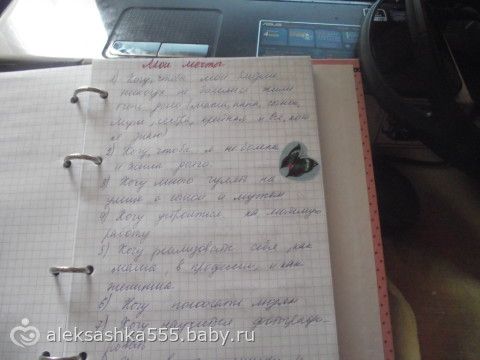 Мои мечты
1) Хочу, чтобы мои близкие
никогда не болели и жили
долго (мама, папа, сынок,
муж, сестра, и все, кого
я знаю)
2) Хочу, чтобы я не болела
и жила долго.
3) Хочу много гулять на
улице с сыном и мужем
4) Хочу устроиться на любимую
работу
5) Хочу реализовать себя как
мама в профессии, и как
женщина
6) Хочу помогать людям
7) Хочу
ASUS
aleksashka555.baby.ru